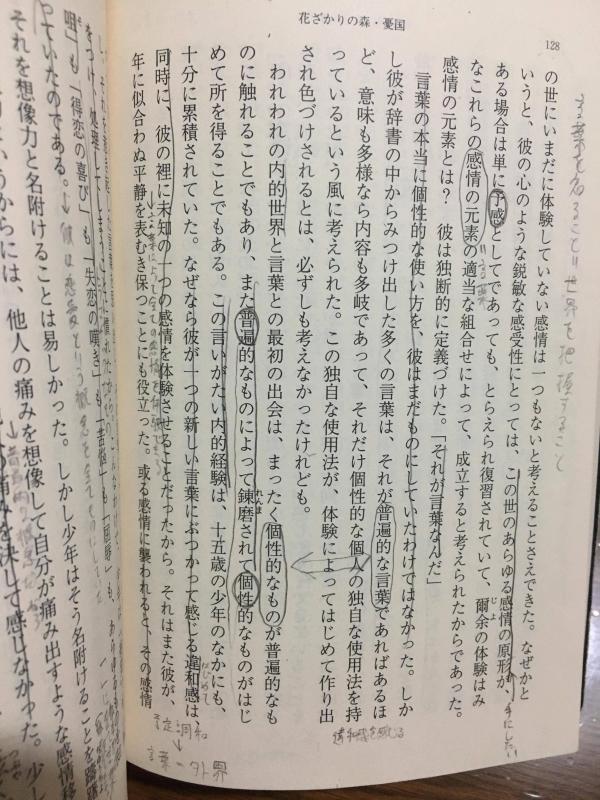 128
花ざかりの森・憂国
の世にいまだに体験していない感情は一つもないと考えることさえできた。なぜかと
いうと、彼の心のような鋭敏な感受性にとっては、この世のあらゆる感情の原形が、
ある場合は単に予感としてであっても、とらえられ復習されていて、爾余の体験はみ
なこれらの感情の元素の適当な組合せによって、成立すると考えられたからであった。
感情の元素とは? 彼は独断的に定義づけた。「それが言葉なんだ」
言葉の本当に個性的な使い方を、彼はまだものにしていたわけではなかった。しか
し彼が辞書の中からみつけ出した多くの言葉は、それが普遍的な言葉であればあるほ
ど、意味も多様なら内容も多岐であって、それだけ個性的な個人の独自な使用法を持
っているという風に考えられた。この独自な使用法が、体験によってはじめて作り出
され色づけされるとは、必ずしも考えなかったけれども。
われわれの内的世界と言葉との最初の出会は、まったく個性的なものが普遍的なも
のに触れることでもあり、また普遍的なものによって錬磨されて個性的なものがはじ
めて所を得ることでもある。この言いがたい内的経験は、十五歳の少年のなかにも、
十分に累積されていた。なぜなら彼が一つの新しい言葉にぶつかって感じる違和感は、
同時に、彼の裡に未知の一つの感情を体験させることだったから。それはまた彼が、
年に似合わぬ平静を表むき保つことにも役立った。或る感情に襲われると、その感情
をつけ、処理してしまう
詛」も「得恋の喜び」も「失恋の嘆き」も「苦悩」も「屈辱」も、
っていたのである。
それを想像力と名附けることは易しかった。しかし少年はそう名附けることを躊躇
からには、他人の痛みを想像して自分が痛み出すような感情移
痛みを決して感じなかった。少し
言葉を知ること=世界を把握すること
違和感を感じる
言葉
外界